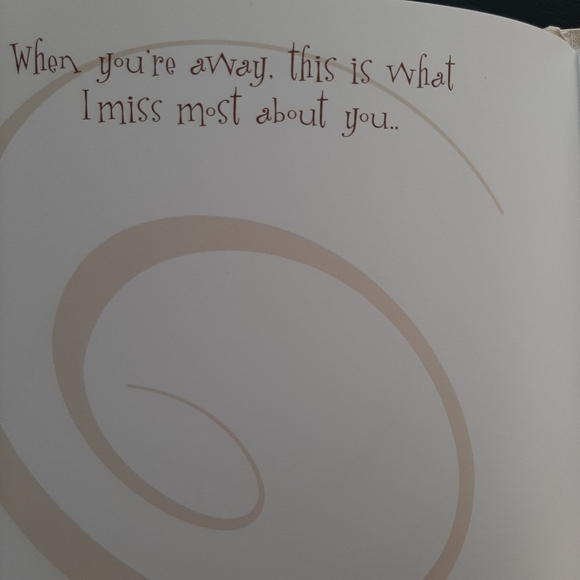 When you're away, this is what
I miss most about you..